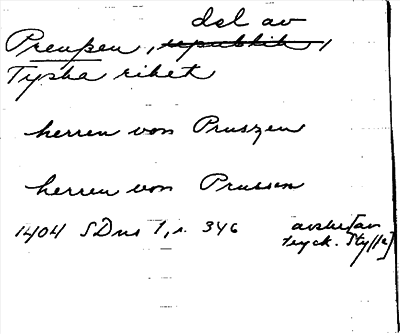 del av
Preuβen, republik,
Tyska riket
herren von Pruszen
herren von Prussen
1404 SDns 1, s. 346 avskr[av
tryck. Styffe]